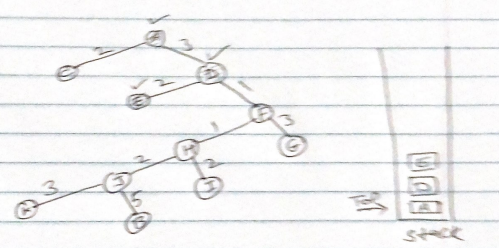 A
2 3
C D
2 1
E F
1 3
H G
2 2
J I
3 5
K B
E
D
TOP A
stack